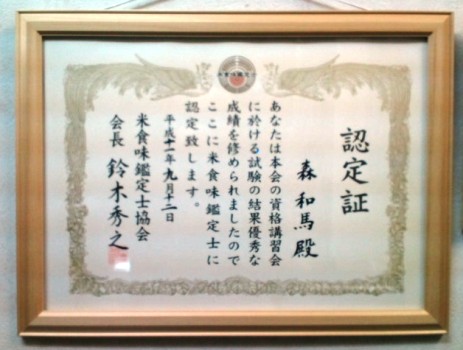 認定証
森 和馬 殿
あなたは本会の資格講習会
に於ける試験の結果優秀な
成績を修められましたので
ここに米食味鑑定士に
認定致します。
平成十一年九月十二日
米食味鑑定士協会
会長 鈴木秀之